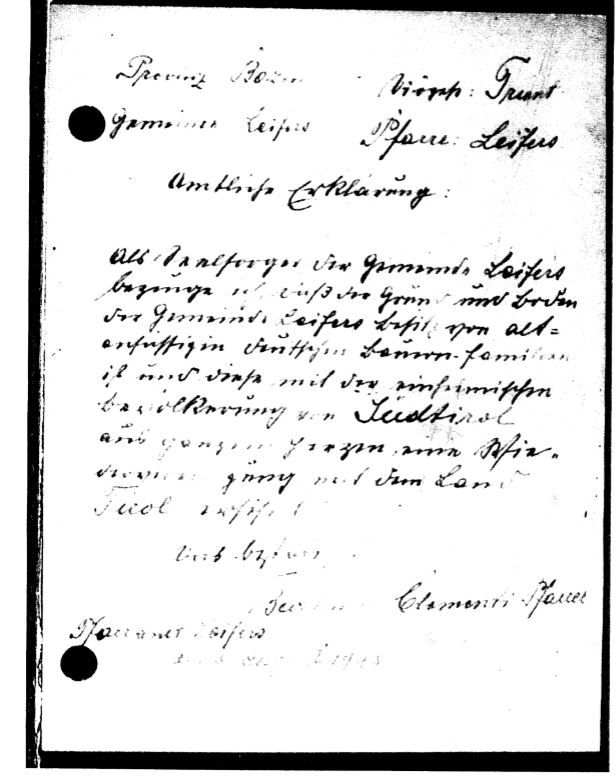 Provinz Bozen
Diözese: Trient
Gemeinde Leifers
Pfarre: Leifers
Amtliche Erklärung:
Als Seelsorger der Gemeinde Leifers
bezeuge ich, daß der Grund und Boden
der Gemeinde Leifers Besitz von alt=
ansässigen deutschen Bauern-familien
ist und diese mit der einheimischen
Bevölkerung von Südtirol
aus ganzem Herzen eine Wie-
dervereinigung mit dem Land
Tirol
Das
Clementi Pfarrer
Pfarramt Leifers